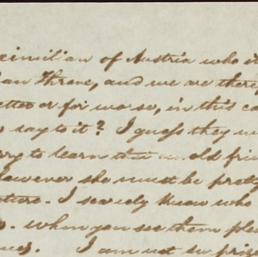 ximilian of Austria who is
an throne, and we are there
etter or for worse, in this ca
say to it? I guess they w
ry to learn that an old frie
However she must be pretty
ture. I scarcely know who
. when you see them plea
I am not so